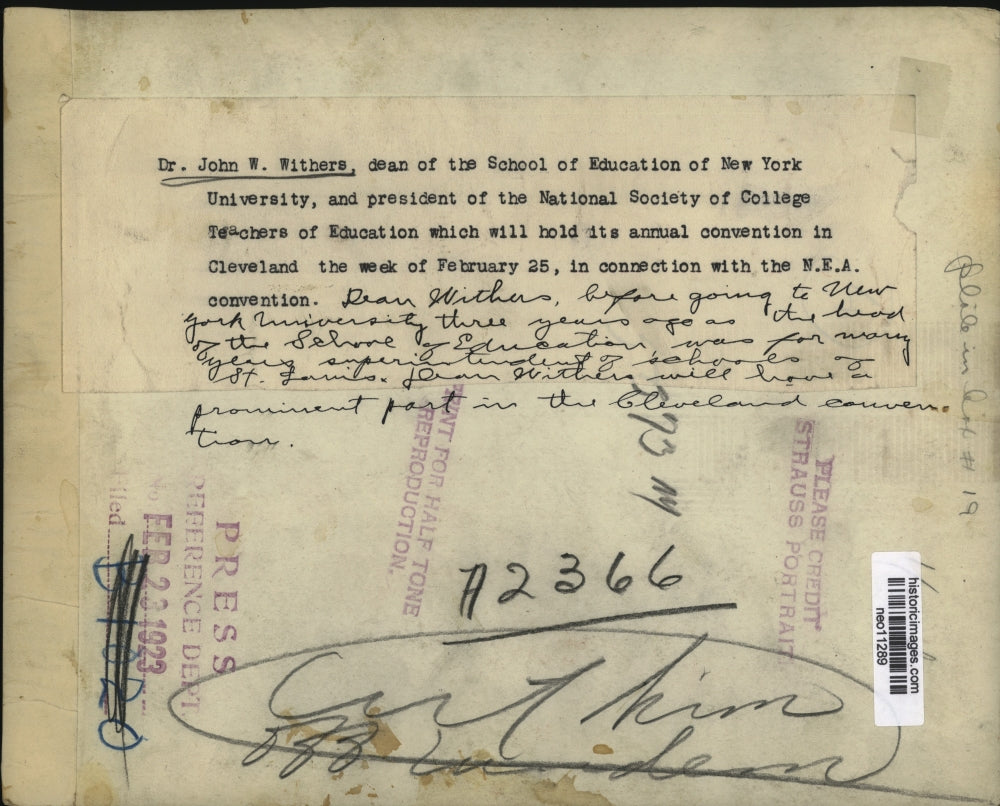 Dr. John W. Withers, dean of the School of Education of New York
University, and president of the National Society of College
Teachers of Education which will hold its annual convention in
Cleveland the week of February 25, in connection with the N.E.A.
convention. Dean Withers, before going to New
York University three years ago as the head
of the School of Education was for many
years superintendent of schools of
St. Louis. Dean Withers will have a
prominent part in the Cleveland conven-
tion.
PRINT FOR HALF TONE
REPRODUCTION.
PLEASE CREDIT
STRAUSS PORTRAIT
PRESS
REFERENCE DEPT.
FEB 23 1923
filed
A2366
Cut him
historicimages.com
neo11289